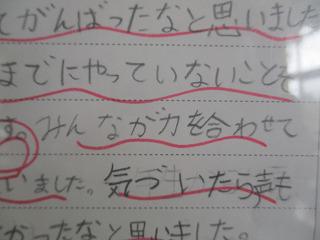 てがんばったなと思いました
までにやっていないことを
す。みんなが力を合わせて
いました。気づいたら声も
かったなと思いました。